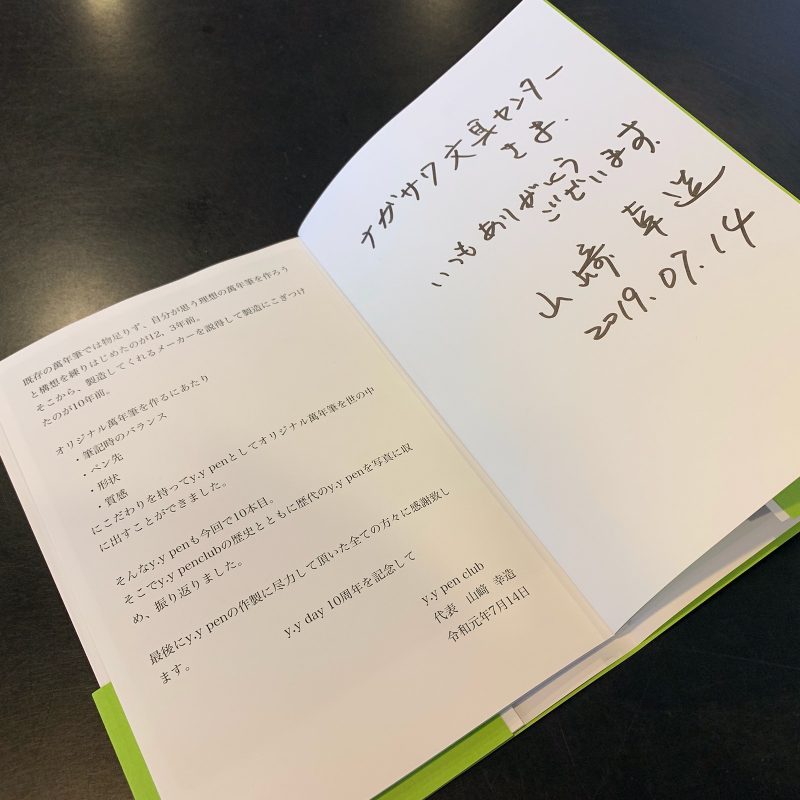 既存の萬年筆では物足りず、自分が思う理想の萬年筆を作ろう
と構想を練りはじめたのが12、3年前。
そこから、製造してくれるメーカーを説得して製造にこぎつけ
たのが10年前。
オリジナル萬年筆を作るにあたり
・筆記時のバランス
・ペン先
・形状
・質感
にこだわりを持ってy.y penとしてオリジナル萬年筆を世の中
に出すことができました。
そんなy.y penも今回で10本目。
そこでy.y penclubの歴史とともに歴代のy.y penを写真に収
め、振り返りました。
最後にy.y penの作製に尽力して頂いた全ての方々に感謝致し
ます。
y.y day 10周年を記念して
y.y pen club
代表 山﨑 幸造
令和元年7月14日
ナガサワ文具センター
さま.
いつもありがとう
ございます.
山﨑 幸造
2019.07.14